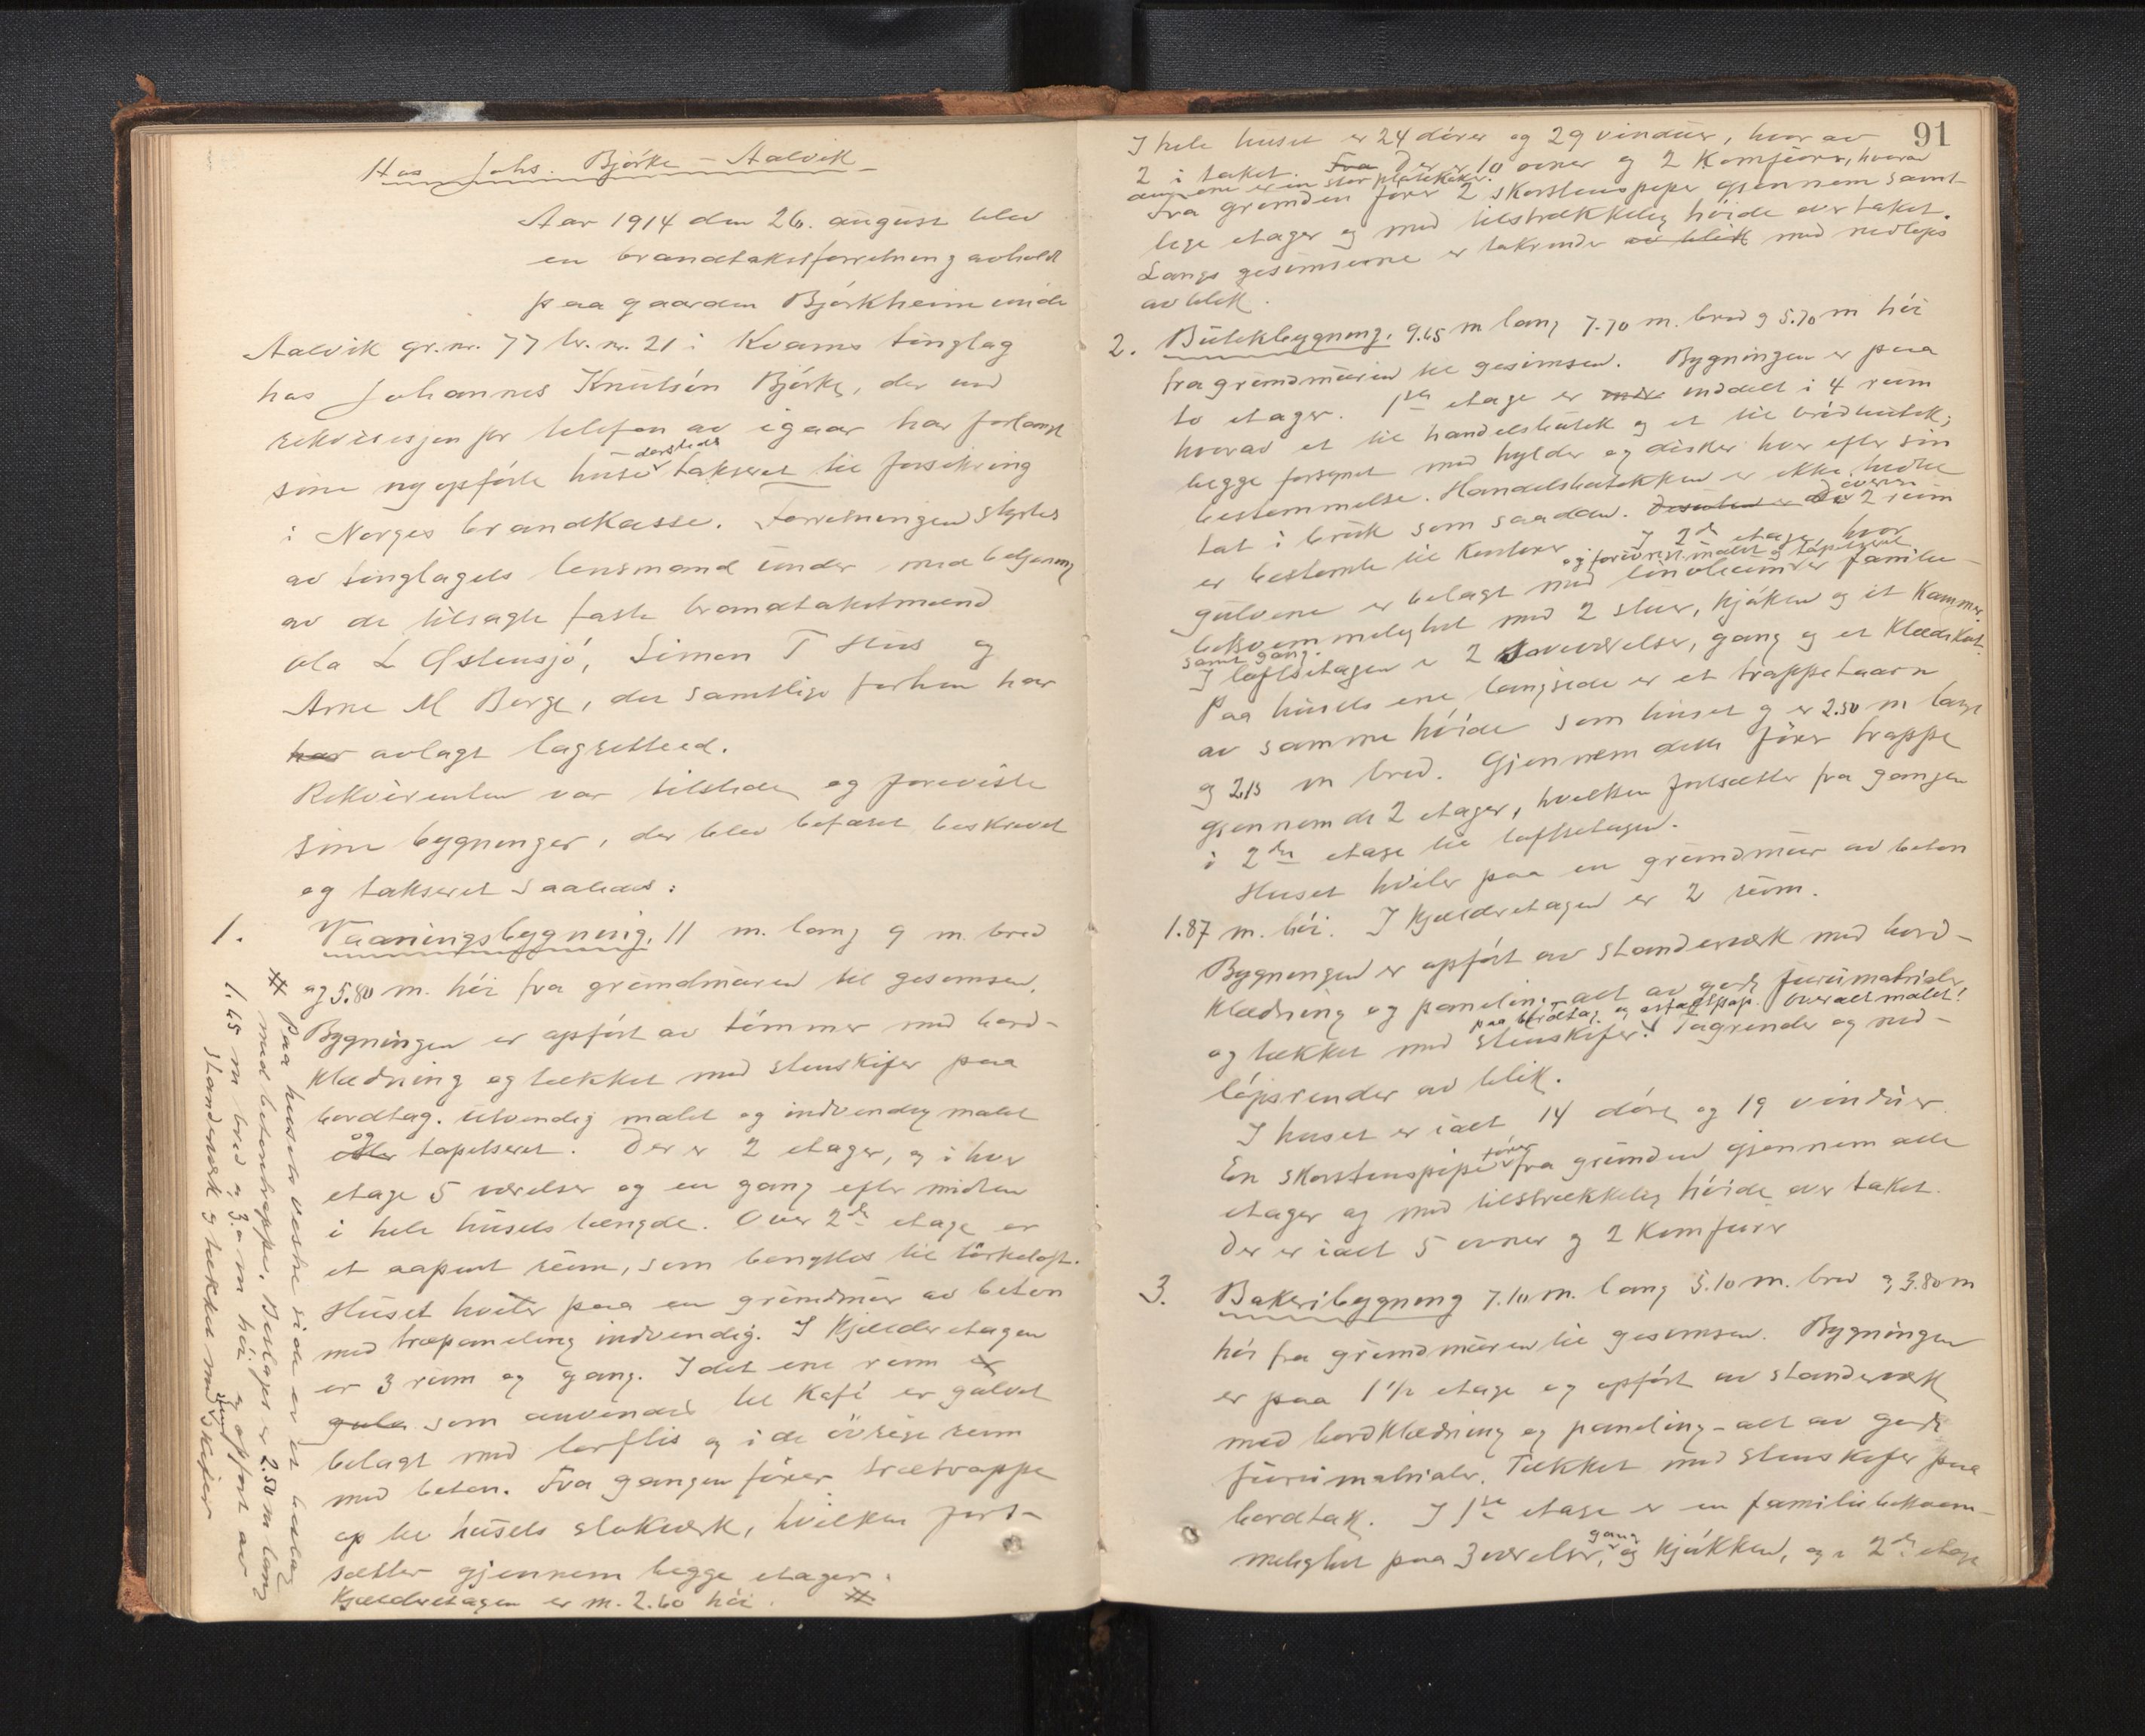 Hos Johs. Björke - Aalvik
Aar 1914 den 26. august blev
en brandtakstforretning avholdt
paa gaarden Björkheim under
Aalvik gr.nr. 77 br.nr. 21 i Kvams tinglag
hos Johannes Knutsön Björke, der ved
rekvisisjon pr telefon av igaar har forlangt
sine nyopförte huse dersteds takseret til forsikring
i Norges brandkasse. Forretningen styrtes
av tinglagets lensmand under med betjening
av de tilsagte faste brandtakstmænd
Ola L Östensjö, Simon T Hus og
Arne M Berge, der samtlige forhen har
har avlagt lagretteed.
Rekvirenten var tilstede og foreviste
sine bygninger, der blev befaret beskrevet
og takseret saaledes:
1. Vaaningsbygning, 11 m. lang 9 m. bred
og 5.80 m. höi fra grundmuren til gesimsen.
Bygningen er opfört av tömmer med bord-
klædning og tækket med stenskifer paa
bordtag. Utvendig malet og indvendig malet
og eller tapetseret. Der er 2 etager, og i hver
etage 5 værelser og en gang efter midten
i hele husets længde. Over 2den etage er
et aapent rum, som benyttes til törkeloft.
Huset hviler paa en grundmur av beton
med træpaneling indvendig. I kjælderetagen
er 3 rum og gang. I det ene rum er
gulv som anvendes til Kafé er gulvet
belagt med lerflis og i de övrige rum
med beton. Fra gangen förer trætrappe
op til husets stokværk, hvilken fort-
sætter gjennem begge etager.
Kjælderetagen er m. 2.60 höi. #
# Paa husets vestre side er et bislag
med betontrappe. Bislaget er 2.50 m lang
1.45 m bred og 3.0 m höi og opfört av
standerværk og tækket med skifer
91
I hele huset er 24 dörer og 29 vinduer, hvor av
2 i taket. Fra Der er 10 ovner og 2 Komfurer, hvorav
den ene er en stor platekokr.
Fra grunden förer 2 skorstenspiper gjennem samt-
lige etager og med tilstrækkelig höide over taket.
Langs gesimserne er takrender av blik med nedlöps
av blik.
2. Butikbygning, 9.65 m lang 7.70 m. bred og 5.70 m höi
fra grundmuren til gesimsen. Bygningen er paa
to etager. 1ste etage er inddelt i 4 rum
hvorav et til handelsbutik og et til brödbutik;
begge forsynet med hylder og disker hver efter sin
bestemmelse. Handelsbutikken er ikke hidtil
tat i bruk som saadan. Desuten er de 2 rum
er bestemte til Kontorer. I 2den etage hvor
og forövrigt malet og tapetseret
gulvene er belagt med linoleum er familie-
bekvemmelighet med 2 stuer, kjöken og et Kammer
samt gang.
I loftsetagen er 2 soveværelser, gang og et Klædekot.
Paa husets ene langside er et trappetaarn
av samme höide som huset og er 2.50 m lang
og 2.15 m bred. Gjennem dette förer trappe
gjennem de 2 etager, hvilken fortsætter fra gangen
i 2den etage til loftsetagen.
Huset hviler paa en grundmur av beton
1.87 m. höi. I kjælderetagen er 2 rum.
Bygningen er opfört av standerværk med bord-
klædning og paneling - alt av gode furumatrialer
paa bordtag og asfaltpap. Overalt malet!
og tækket med stenskifer. Tagrender og ned-
löpsrender av blik.
I huset er ialt 14 döre og 19 vinduer.
En skorstenspipe förer fra grunden gjennem alle
etager og med tilstrækkelig höide over taket.
Der er ialt 5 ovner og 2 Komfurer
3. Bakeribygning 7.10 m. lang 5.10 m. bred og 3.80 m
höi fra grundmuren til gesimsen. Bygningen
er paa 1 1/2 etage og opfört av standerværk
med bordklædning og paneling - alt av gode
furumatrialer. Tækket med stenskifer paa
bordtak. I 1ste etage er en familiebekvem-
melighet paa 3 værelser, gang og kjökken, og i 2den etage